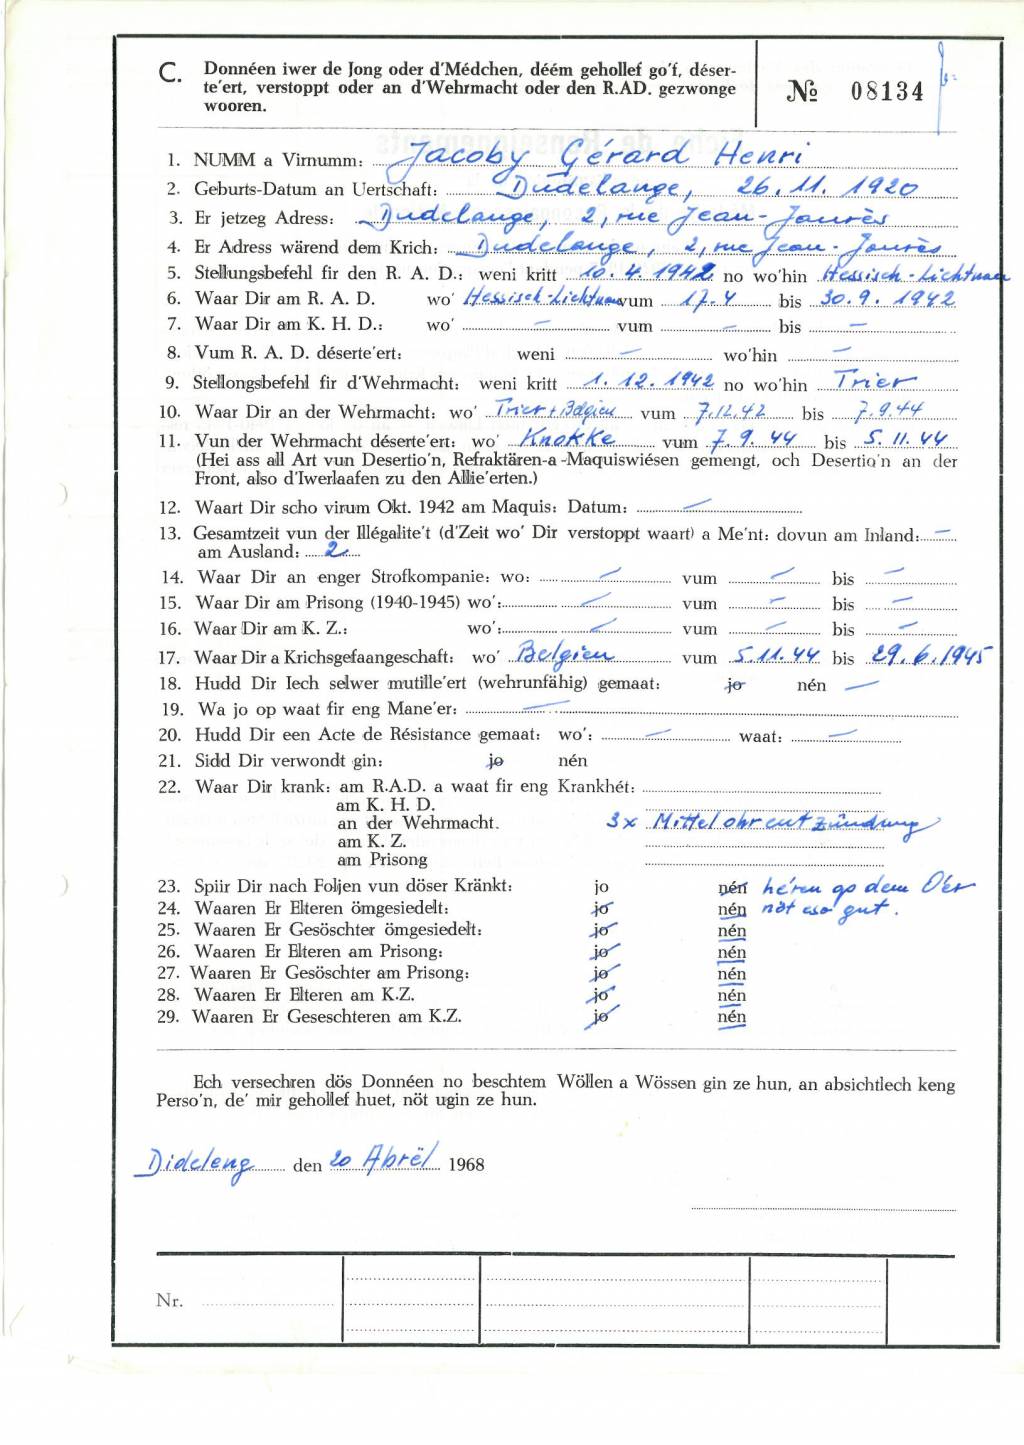 C. Donnéen iwer de Jong oder d'Médchen, déém gehollef go'f, déser-
te'ert, verstoppt oder an d'Wehrmacht oder den R.AD. gezwonge
wooren.
№ 08134
1. NUMM a Virnumm: Jacoby Gérard Henri
2. Geburts-Datum an Uertschaft: Dudelange, 26.11.1920
3. Er jetzeg Adress: Dudelange, 2, rue Jean-Jaurès
4. Er Adress wärend dem Krich: Dudelange, 2, rue Jean-Jaurès
5. Stellungsbefehl fir den R. A. D.: weni kritt 10.4.1942 no wo'hin Hessisch-Lichtnau
6. Waar Dir am R. A. D. wo' Hessisch-Lichtnau vum 17.4 bis 30.9.1942
7. Waar Dir am K. H. D.: wo' — vum — bis —
8. Vum R. A. D. déserte'ert: weni — wo'hin —
9. Stellongsbefehl fir d'Wehrmacht: weni kritt 1.12.1942 no wo'hin Trier
10. Waar Dir an der Wehrmacht: wo' Trier + Belgien vum 7.12.42 bis 7.9.44
11. Vun der Wehrmacht déserte'ert: wo' Knokke vum 7.9.44 bis 5.11.44
(Hei ass all Art vun Desertio'n, Refraktären-a-Maquiswiésen gemengt, och Desertio'n an der
Front, also d'Iwerlaafen zu den Allie'erten.)
12. Waart Dir scho virum Okt. 1942 am Maquis: Datum: —
13. Gesamtzeit vun der Illégalite't (d'Zeit wo' Dir verstoppt waart) a Me'nt: dovun am Inland: —
am Ausland: 2
14. Waar Dir an enger Strofkompanie: wo: — vum — bis —
15. Waar Dir am Prisong (1940-1945) wo': — vum — bis —
16. Waar Dir am K. Z.: wo': — vum — bis —
17. Waar Dir a Krichsgefaangeschaft: wo' Belgien vum 5.11.44 bis 29.6.1945
18. Hudd Dir Iech selwer mutille'ert (wehrunfähig) gemaat: jo nén —
19. Wa jo op waat fir eng Mane'er: —
20. Hudd Dir een Acte de Résistance gemaat: wo': — waat: —
21. Sidd Dir verwondt gin: jo nén
22. Waar Dir krank: am R.A.D. a waat fir eng Krankhét:
am K. H. D.
an der Wehrmacht. 3x Mittelohrentzündung
am K. Z.
am Prisong
23. Spiir Dir nach Foljen vun döser Kränkt: jo nén héren op dem O'er
24. Waaren Er Elteren ömgesiedelt: jo nén nöt eso gut.
25. Waaren Er Gesöschter ömgesiedelt: jo nén
26. Waaren Er Elteren am Prisong: jo nén
27. Waaren Er Gesöschter am Prisong: jo nén
28. Waaren Er Elteren am K.Z. jo nén
29. Waaren Er Geseschteren am K.Z. jo nén
Ech versechren dös Donnéen no beschtem Wöllen a Wössen gin ze hun, an absichtlech keng
Perso'n, de' mir gehollef huet, nöt ugin ze hun.
Dideleng den 20 Abrël 1968
Nr.